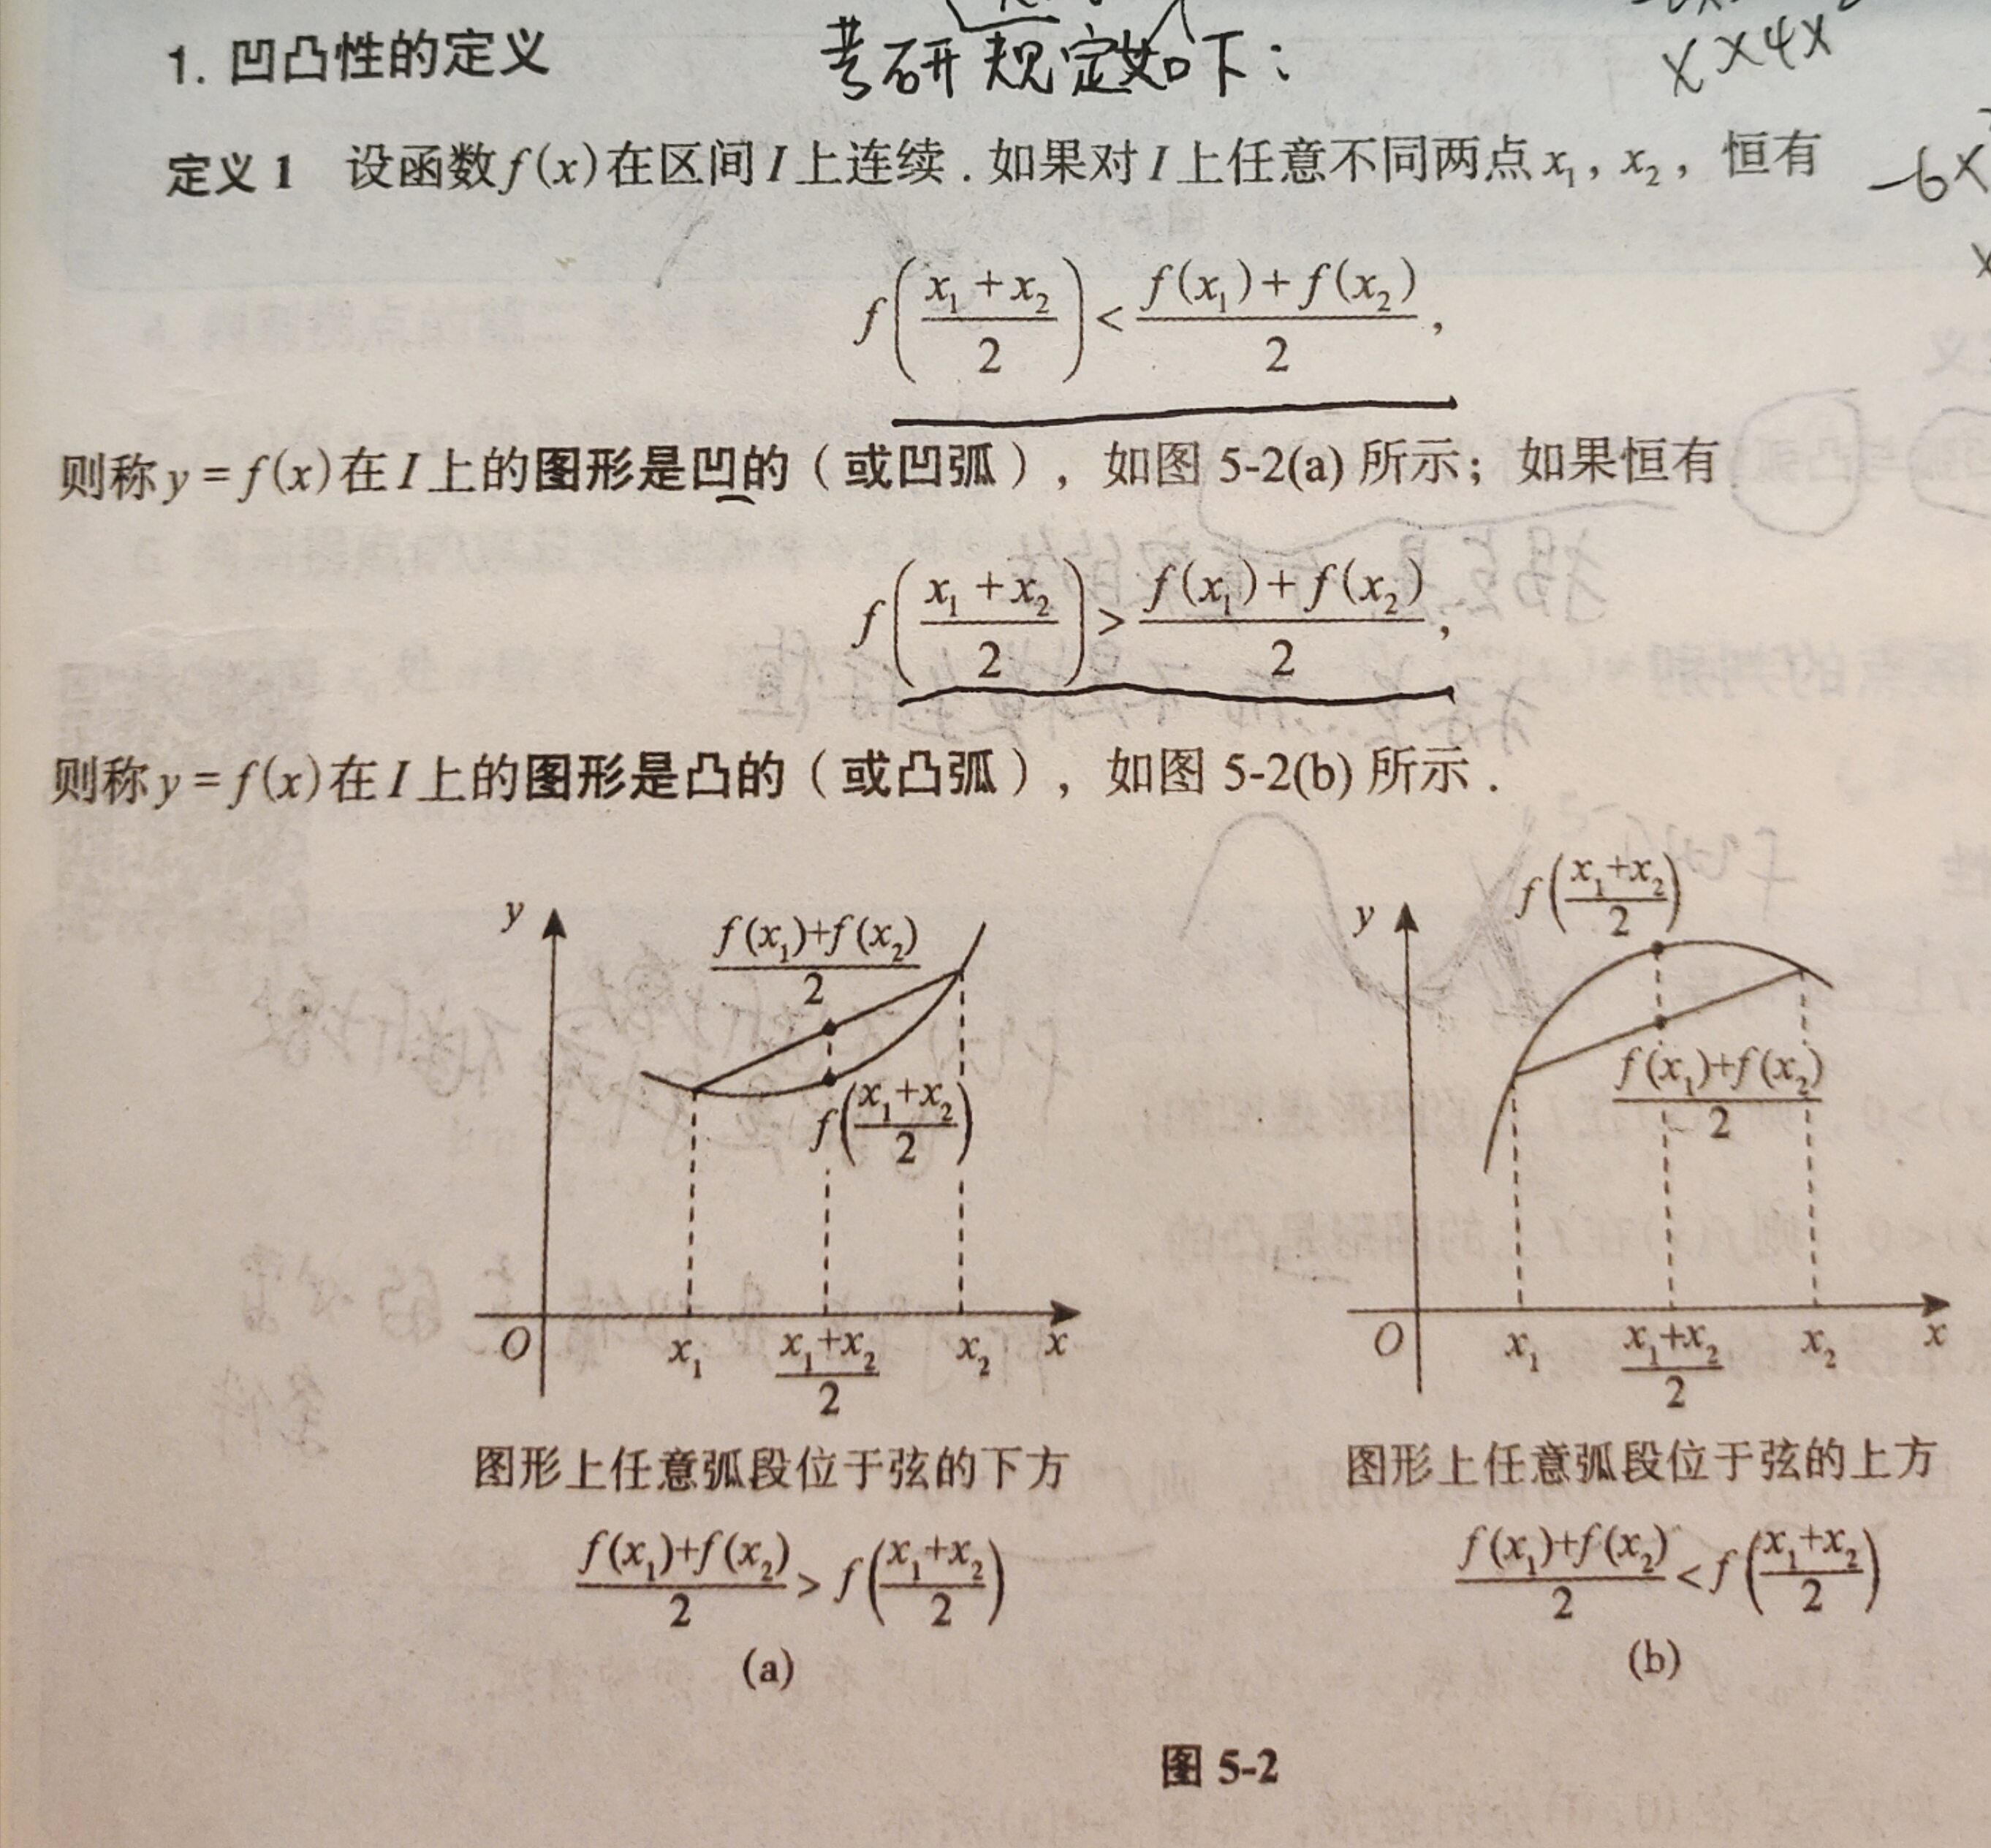 1. 凹凸性的定义 考研规定如下：
定义 1 设函数 f(x) 在区间 I 上连续 . 如果对 I 上任意不同两点 x₁, x₂，恒有
f((x₁+x₂)/2) < (f(x₁)+f(x₂))/2 ,
则称 y = f(x) 在 I 上的图形是凹的（或凹弧），如图 5-2(a) 所示；如果恒有
f((x₁+x₂)/2) > (f(x₁)+f(x₂))/2 ,
则称 y = f(x) 在 I 上的图形是凸的（或凸弧），如图 5-2(b) 所示 .
y
(f(x₁)+f(x₂))/2
f((x₁+x₂)/2)
O x₁ (x₁+x₂)/2 x₂ x
图形上任意弧段位于弦的下方
(f(x₁)+f(x₂))/2 > f((x₁+x₂)/2)
(a)
y
f((x₁+x₂)/2)
(f(x₁)+f(x₂))/2
O x₁ (x₁+x₂)/2 x₂ x
图形上任意弧段位于弦的上方
(f(x₁)+f(x₂))/2 < f((x₁+x₂)/2)
(b)
图 5-2